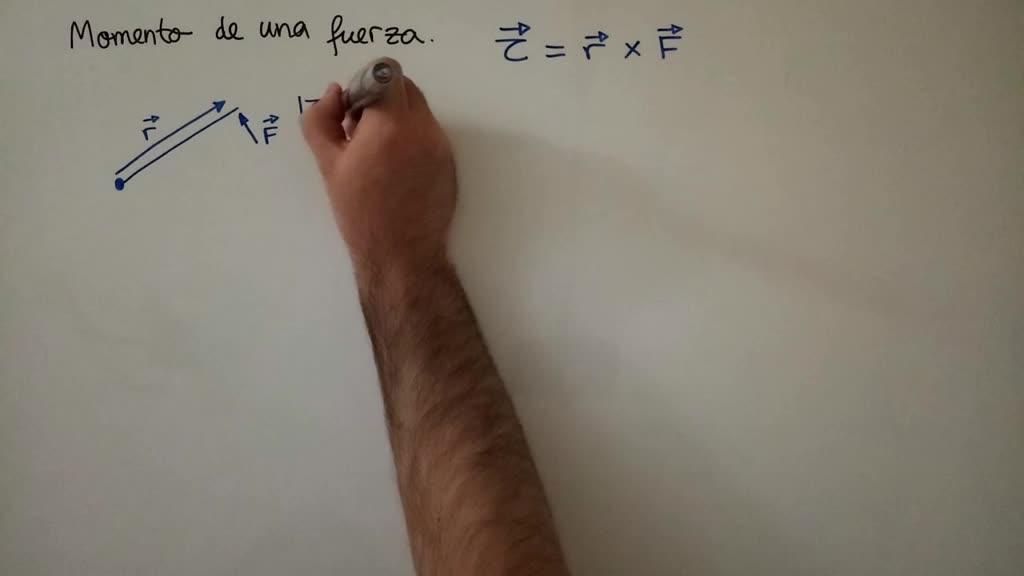 Momento de una fuerza.
τ⃗ = r⃗ × F⃗
r⃗
F⃗